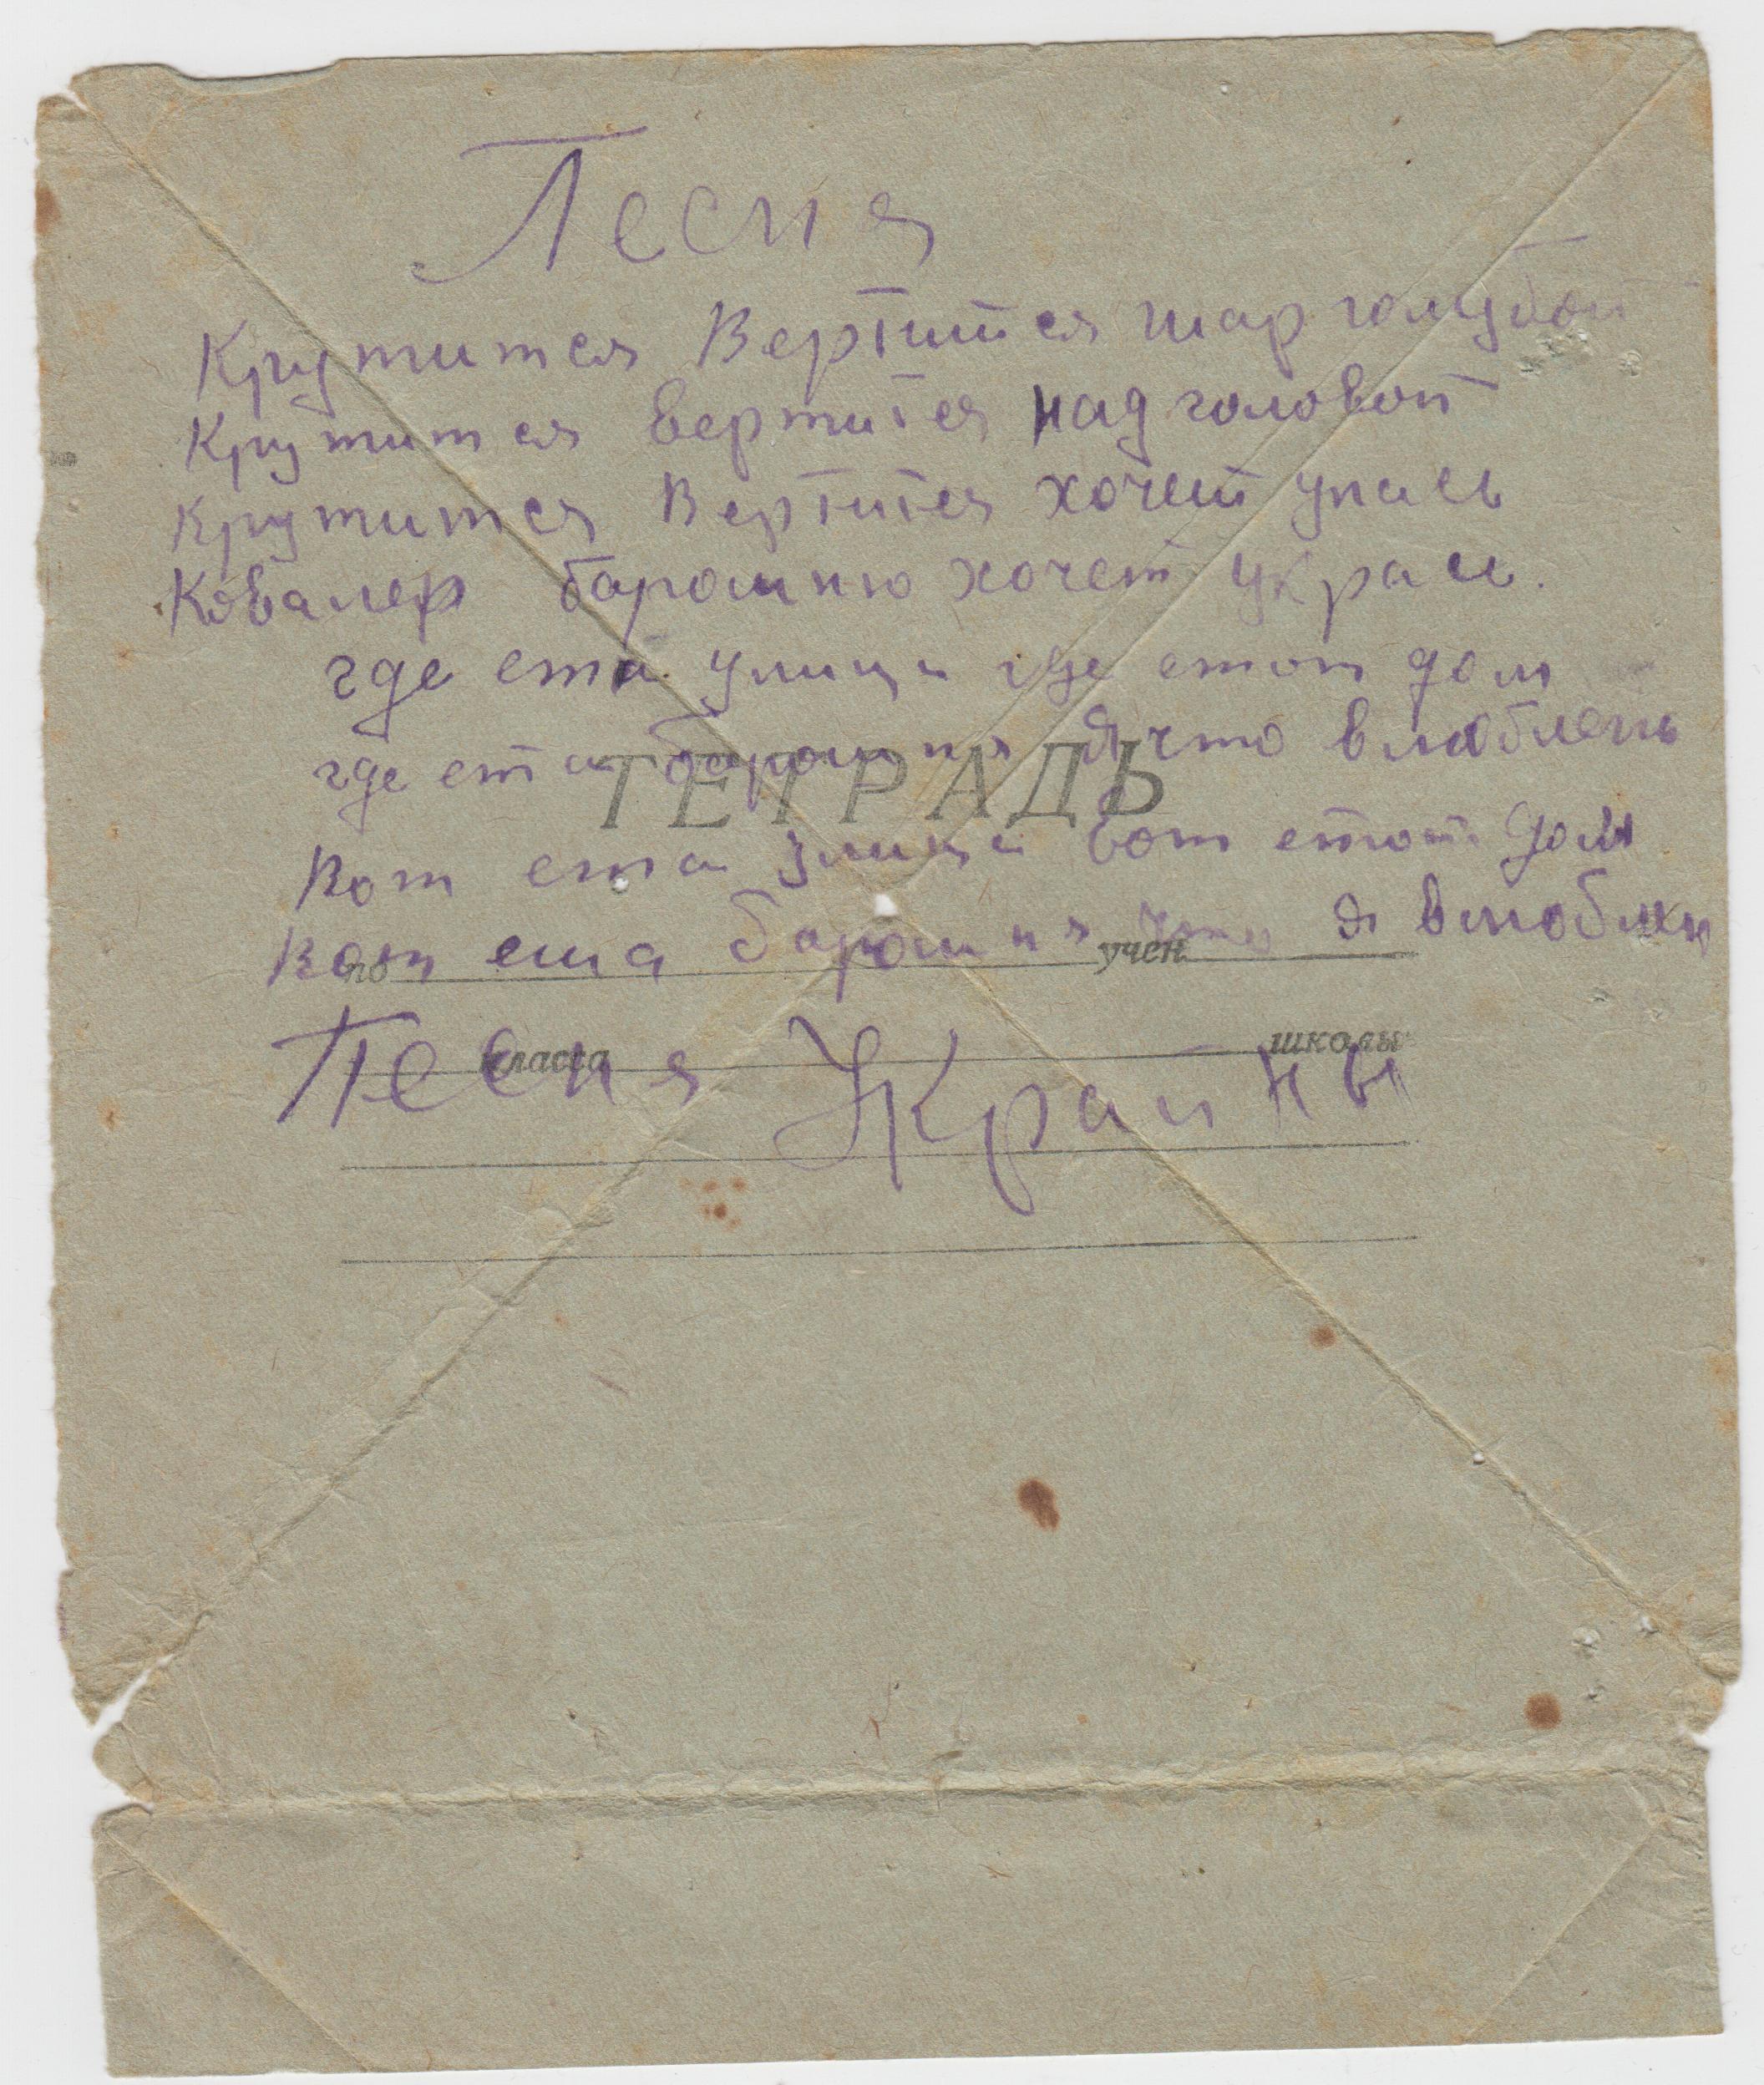 Песня
Крутится Вертится шар голубой
Крутится вертится над головой
Крутится Вертится хочет упась
Ковалер барошню хочет укрась.
где ета улица где етот дом
где ета барошня я что влюблень
ТЕТРАДЬ
Вот ета улица вот етот дом
Вот ета барошня что я влюблен
по учен
класса школы
Песня Украины